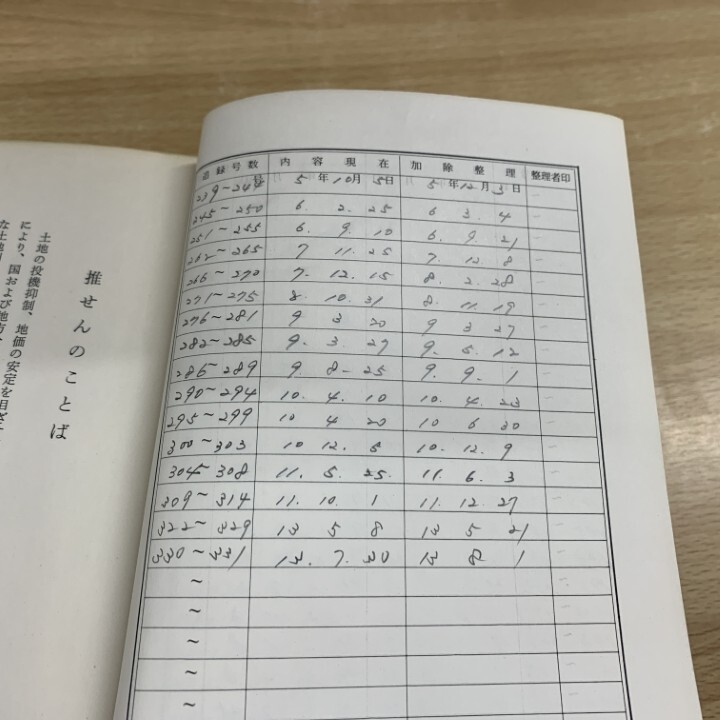 追録号数 内容現在 加除整理 整理者印
239~244号 5年10月15日 5年12月3日
245~250 6. 2. 25 6 3. 4
251~255 6. 9. 10 6. 9. 21
262~265 7 11. 25 7. 12. 8
266~270 7. 12. 15 8. 2. 28
271~275 8. 10. 31 8. 11. 19
276~281 9 3 20 9 3 27
282~285 9. 3. 27 9. 5. 12
286~289 9. 8. 25 9. 9. 1
290~294 10. 4. 10 10. 4. 23
295~299 10 4 20 10 6 30
300~303 10 12. 5 10. 12. 9
304~308 11. 5. 25. 11. 6. 3
309~314 11. 10. 1 11. 12. 27
322~329 13 5 8 13 5 21
330~331 13. 7. 30 13 8 1
~
~
~
~
~
推せんのことば
土地の投機抑制、地価の安定を目ざ
により、国および地方
な土地利